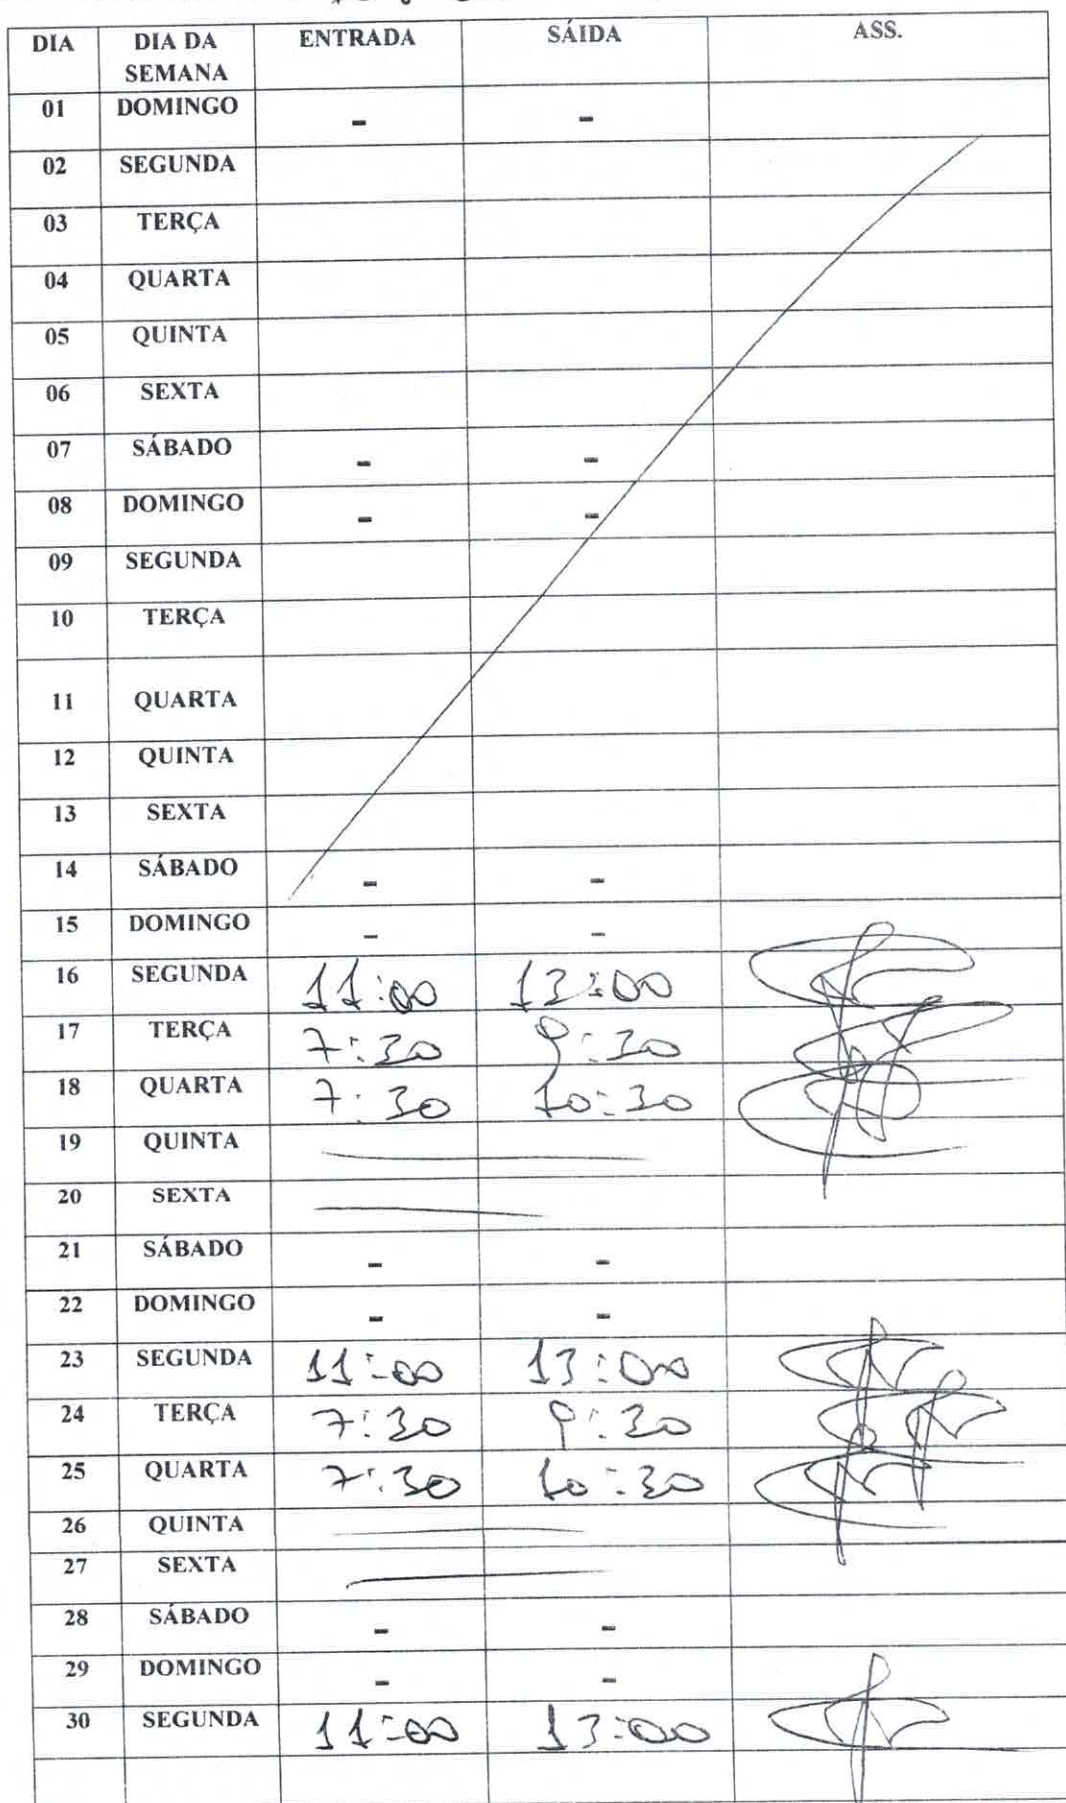 DIA DIA DA SEMANA ENTRADA SÁIDA ASS.
01 DOMINGO - -
02 SEGUNDA
03 TERÇA
04 QUARTA
05 QUINTA
06 SEXTA
07 SÁBADO - -
08 DOMINGO - -
09 SEGUNDA
10 TERÇA
11 QUARTA
12 QUINTA
13 SEXTA
14 SÁBADO - -
15 DOMINGO - -
16 SEGUNDA 11:00 13:00
17 TERÇA 7:30 9:30
18 QUARTA 7:30 10:30
19 QUINTA
20 SEXTA
21 SÁBADO - -
22 DOMINGO - -
23 SEGUNDA 11:00 13:00
24 TERÇA 7:30 9:30
25 QUARTA 7:30 10:30
26 QUINTA
27 SEXTA
28 SÁBADO - -
29 DOMINGO - -
30 SEGUNDA 11:00 13:00